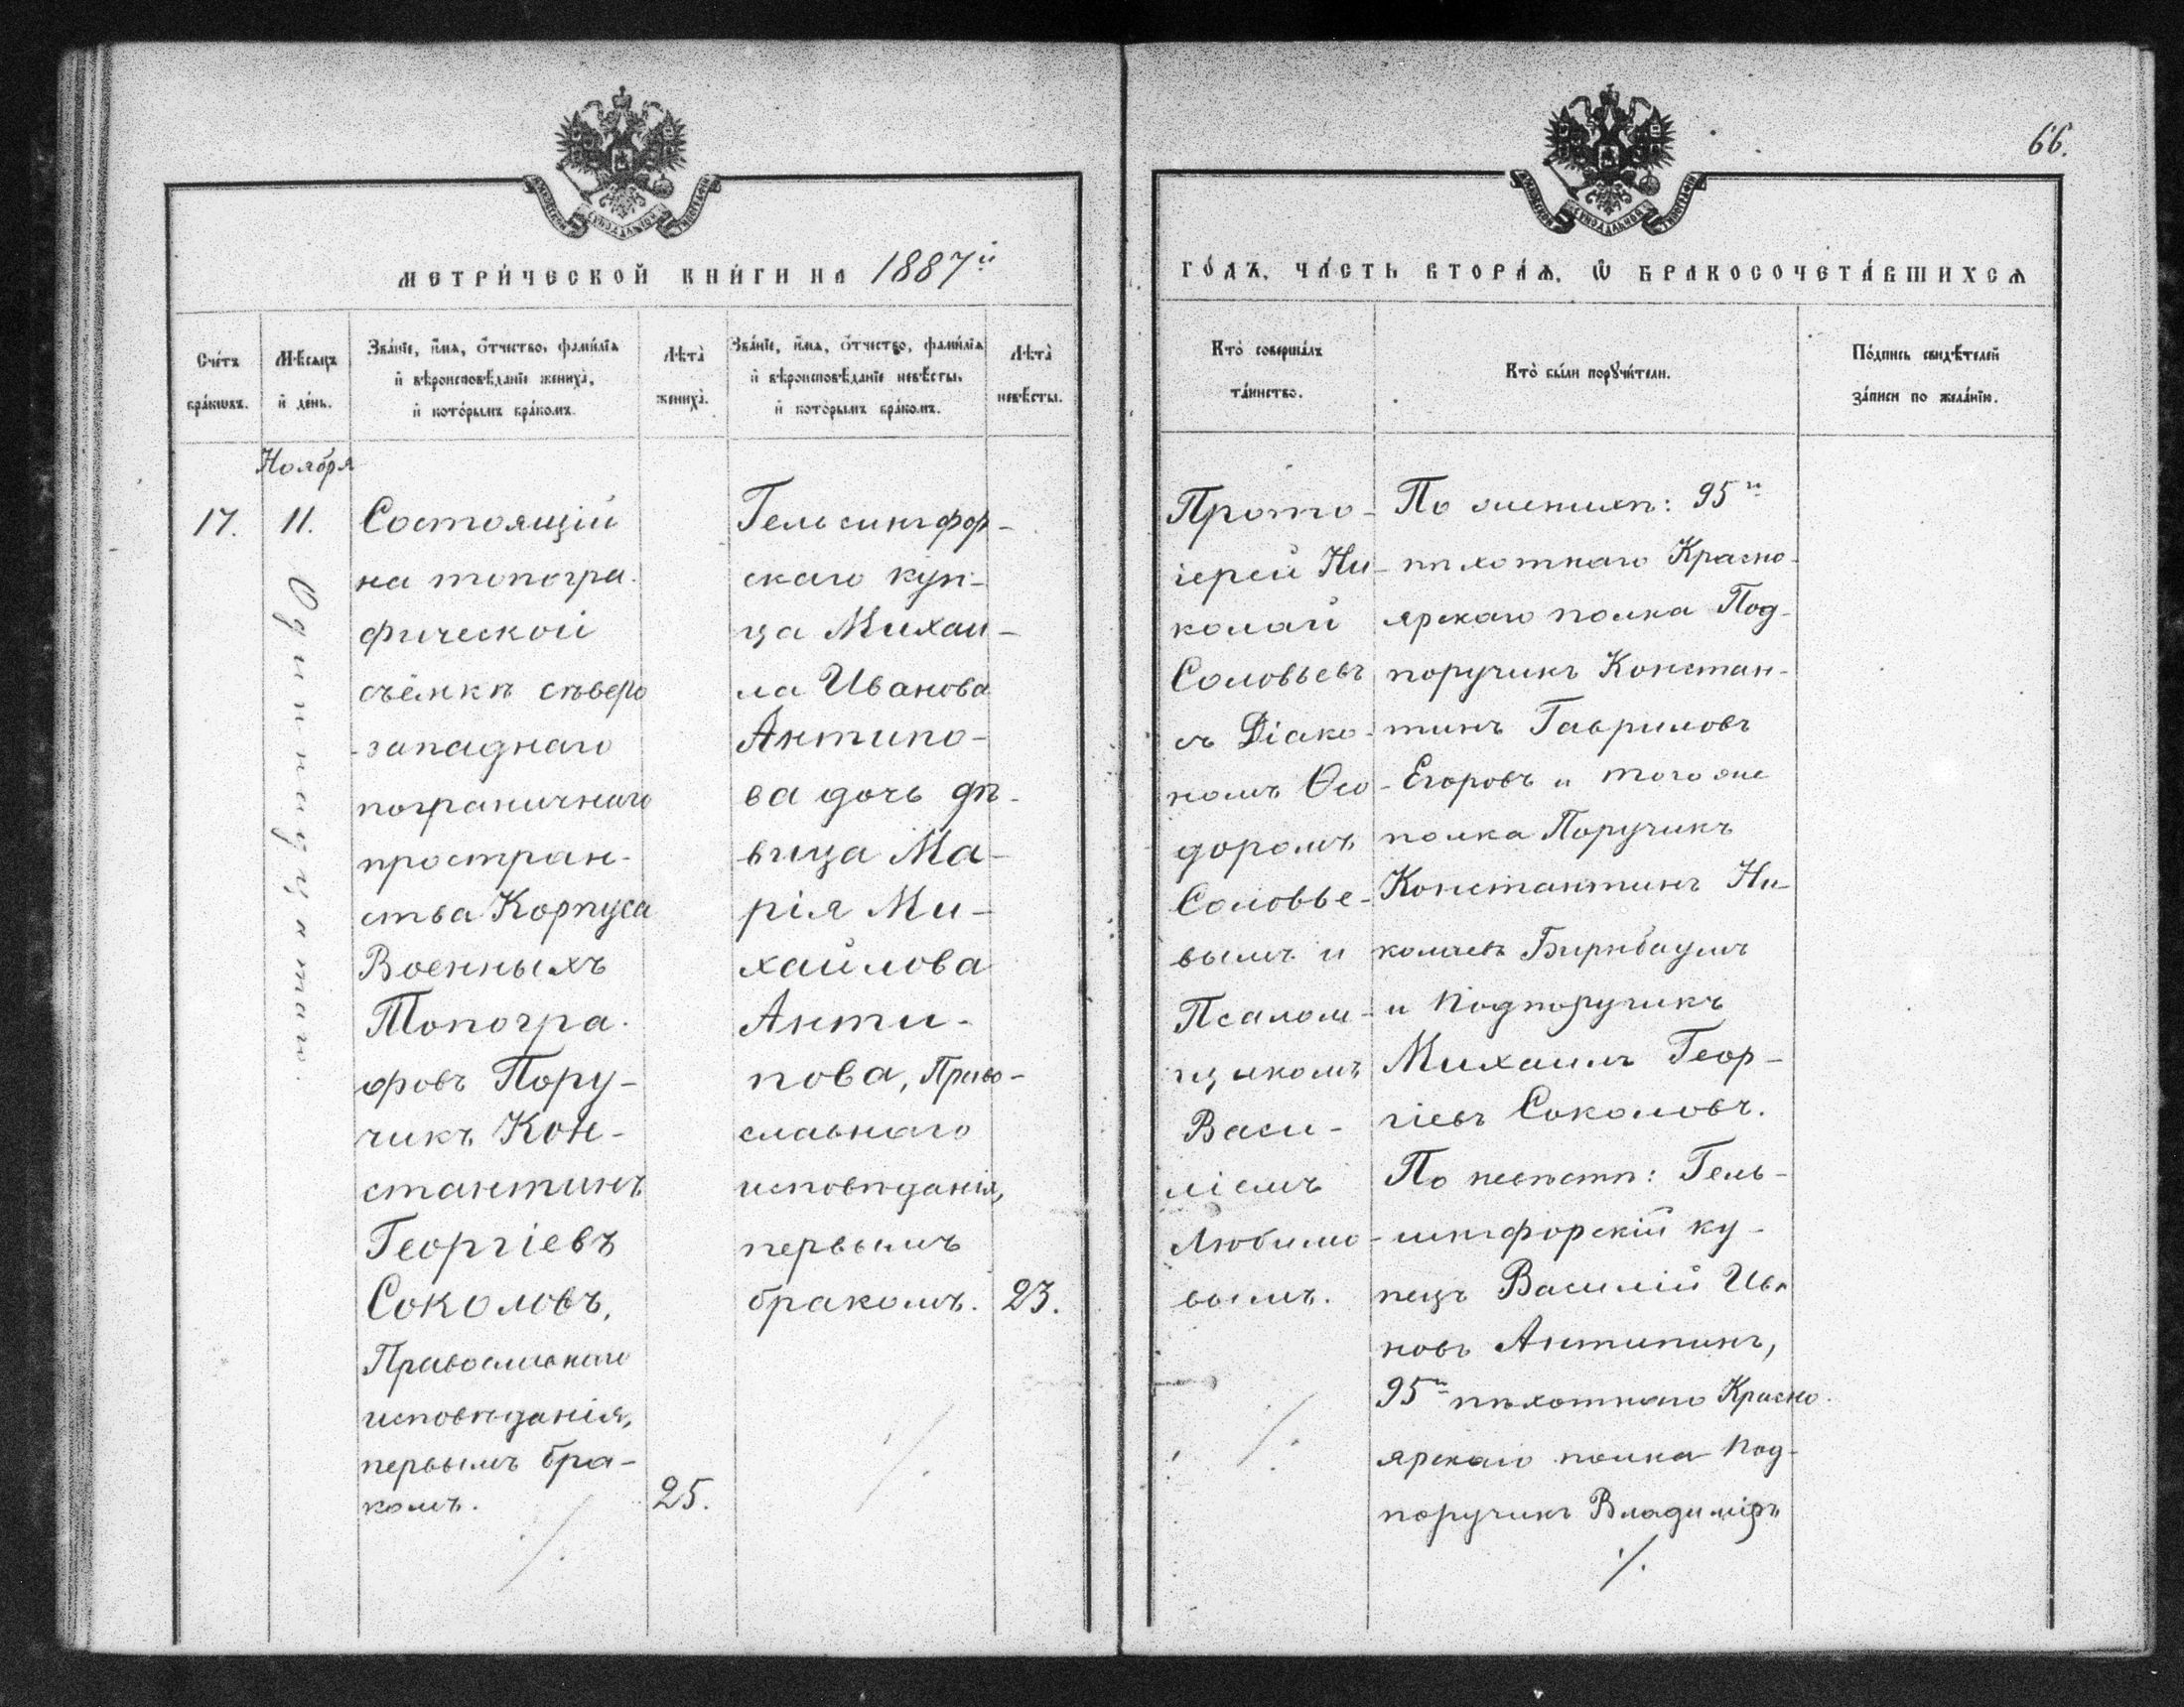 66.
МЕТРИ́ЧЕСКОЙ КНИ́ГИ НА 1887й
ГО́ДЪ, ЧА́СТЬ ВТОРА́Ѧ, Ѽ БРАКОСОЧЕТА́ВШИХСѦ
Сче́тъ
бра́кѡвъ.
Мѣ́сяцъ
и҆ де́нь.
Зва́нїе, и҆́мя, о҆́тчество, фами́лїя
и҆ вѣроисповѣ́данїе жениха̀,
и҆ кото́рымъ бра́комъ.
Лѣта̀
жениха̀.
Зва́нїе, и҆́мя, о҆́тчество, фами́лїя
и҆ вѣроисповѣ́данїе невѣ́сты,
и҆ кото́рымъ бра́комъ.
Лѣта̀
невѣ́сты.
Кто̀ соверша́лъ
та́инство.
Кто̀ бы́ли порꙋчи́тели.
По́дпись свидѣ́телей
за́писи по жела́нїю.
Ноября
17.
11.
Одиннадцатаго.
Состоящій
на топогра-
фической
съёмкѣ сѣверо
-западнаго
пограничнаго
простран-
ства Корпуса
Военныхъ
Топогра-
фовъ Пору-
чикъ Кон-
стантинъ
Георгіевъ
Соколовъ,
Православнаго
исповѣданія,
первымъ бра-
комъ.
25.
Гельсингфор-
скаго куп-
ца Михаи-
ла Иванова
Антипо-
ва дочь дѣ-
вица Ма-
рія Ми-
хайлова
Анти-
пова, Право-
славнаго
исповѣданія,
первымъ
бракомъ.
23.
Прото-
іерей Ни-
колай
Соловьевъ
съ Діако-
номъ Ѳео-
доромъ
Соловье-
вымъ и
Псалом-
щикомъ
Васи-
ліемъ
Любимо-
вымъ.
По женихѣ: 95го
пѣхотнаго Красно-
ярскаго полка Под-
поручикъ Констан-
тинъ Гавриловъ
Егоровъ и того же
полка Поручикъ
Константинъ Ни-
колаевъ Бирнбаумъ
и Подпоручикъ
Михаилъ Геор-
гіевъ Соколовъ.
По невѣстѣ: Гель-
сингфорскій ку-
пецъ Василій Ива
новъ Антипинъ,
95го пѣхотнаго Красно-
ярскаго полка Под-
поручикъ Владиміръ